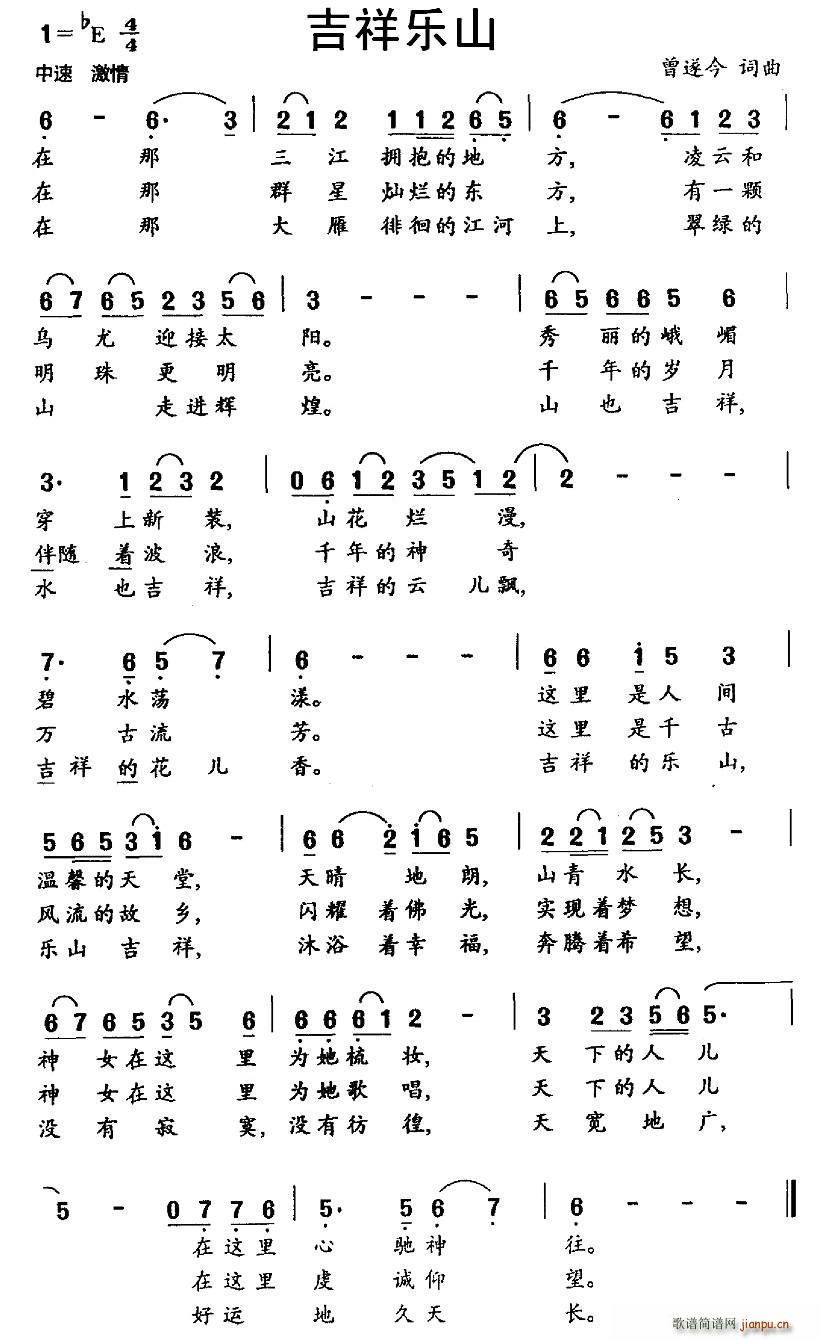 吉祥乐山
1=♭E 4/4
中速 激情
曾遂今 词曲
6 - 6· 3 | 2 1 2 1 1 2 6 5 | 6 - 6 1 2 3 |
在 那 三 江 拥抱的地 方, 凌云和
在 那 群 星 灿烂的东 方, 有一颗
在 那 大 雁 徘徊的江河 上, 翠绿的
6 7 6 5 2 3 5 6 | 3 - - - | 6 5 6 6 5 6
乌 尤 迎接太 阳。 秀 丽的峨嵋
明 珠 更 明 亮。 千 年的岁月
山 走进辉 煌。 山 也 吉 祥,
3· 1 2 3 2 | 0 6 1 2 3 5 1 2 | 2 - - - |
穿 上新 装, 山花 烂 漫,
伴随 着波 浪, 千年的神 奇
水 也吉 祥, 吉祥的云 儿飘,
7· 6 5 7 | 6 - - - | 6 6 1 5 3
碧 水荡 漾。 这里 是人 间
万 古流 芳。 这里 是千 古
吉祥 的花 儿 香。 吉祥 的乐 山,
5 6 5 3 1 6 - | 6 6 2 1 6 5 | 2 2 1 2 5 3 - |
温馨的天 堂, 天晴 地 朗, 山青 水 长,
风流的故 乡, 闪耀 着佛 光, 实现着梦 想,
乐山 吉 祥, 沐浴 着幸 福, 奔腾着希 望,
6 7 6 5 3 5 6 | 6 6 6 1 2 - | 3 2 3 5 6 5·
神 女在这 里 为她梳 妆, 天 下的人 儿
神 女在这 里 为她歌 唱, 天 下的人 儿
没 有 寂 寞, 没有彷 徨, 天 宽 地 广,
5 - 0 7 7 6 | 5· 5 6 7 | 6 - - ‖
在这里 心 驰神 往。
在这里 虔 诚仰 望。
好运 地 久天 长。
歌谱简谱网
jianpu.cn